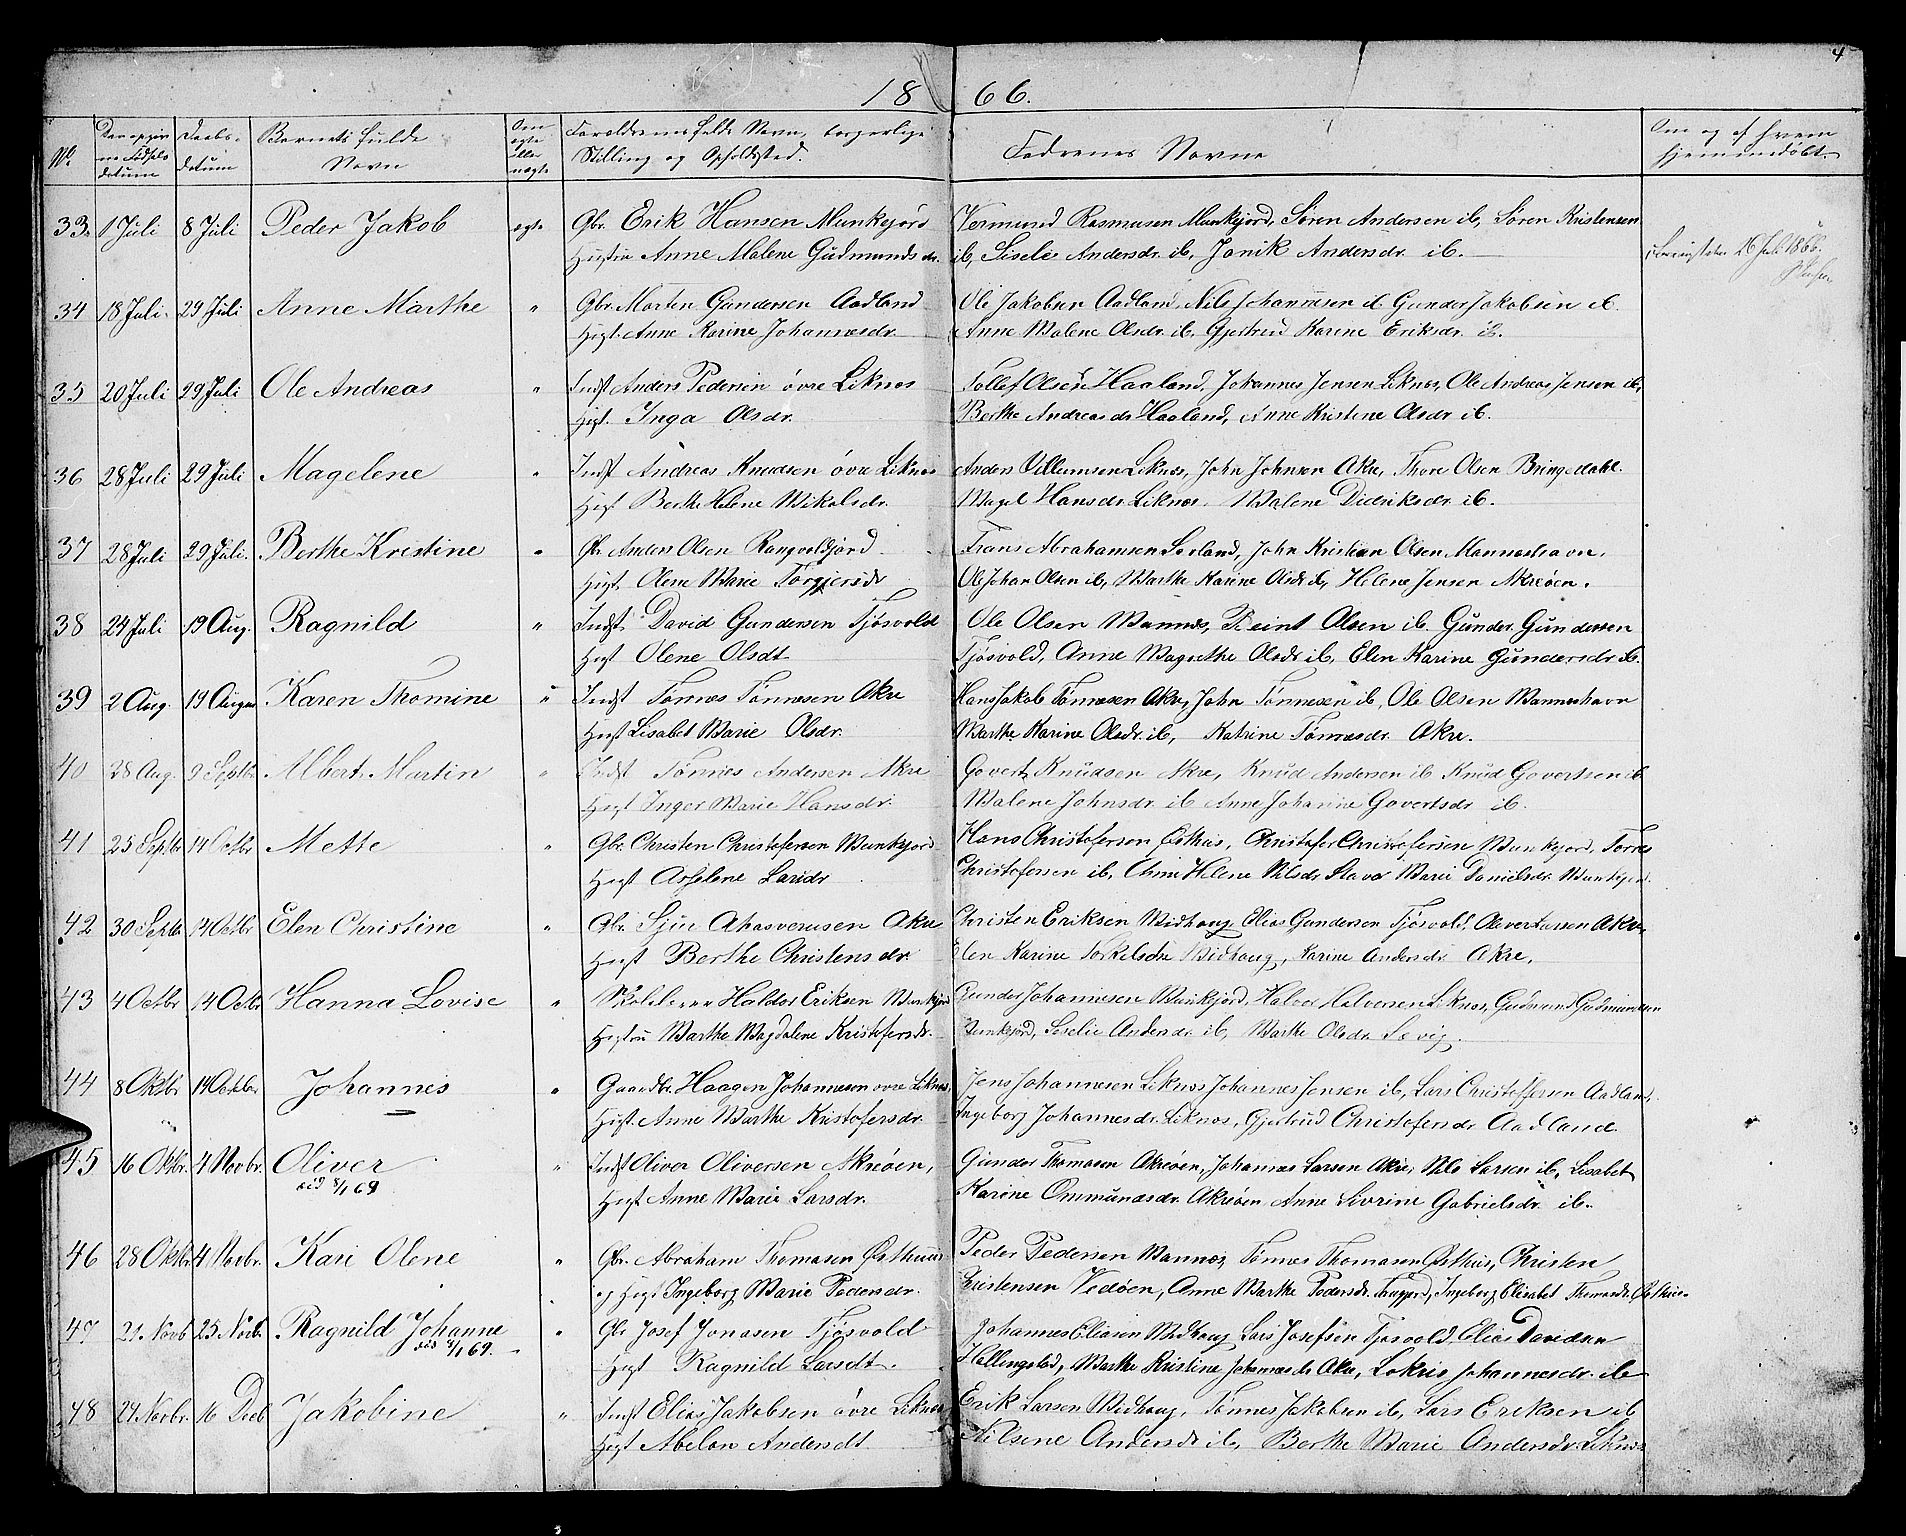 4
18 66.
No. Den opgivne Fødsels datum Daabs- datum Barnets fulde Navn Om ægte eller uægte Forældrenes fulde Navn, borgerlige Stilling og Opholdssted. Faddrenes Navne Om og af hvem hjemmedøbt.
33. 1 Juli 8 Juli Peder Jakob ægte Gbr. Erik Hansen Munkejord Vermund Rasmusen Munkjord, Søren Andersen ib, Søren Kristensen
Hustru Anne Malene Gudmundsdr. ib, Sisele Andersdr. ib, Janik Andersdr ib. 26 Juli 1866.
34 18 Juli 29 Juli Anne Marthe " Gbr. Morten Gundersen Aadland Ole Jakobsen Aadland, Nils Johannesen ib. Gunder Jakobsen ib.
Hgst. Anne Karine Johannesdr. Anne Malene Olsdr. ib, Gjertrud Karine Eriksdr. ib.
35 20 Juli 29 Juli Ole Andreas " Indst Anders Pedersen øvre Liknes Tollef Olsen Haaland, Johannes Jensen Liknes, Ole Andreas Jensen ib,
Hgst. Inga Olsdr. Berthe Andreasdr Haaland, Anne Kristine Olsdr ib.
36 28 Juli 29 Juli Magelene " Indst Andreas Knudsen øvre Liknes Anders Villumsen Liknes, John Johnsen Akre, Thore Olsen Bringedahl.
Hgst Berthe Helene Mikalsdr. Magel Hansdr. Liknes. Malene Didriksdr. ib.
37 28 Juli 29 Juli. Berthe Kristine " Gbr Anders Olsen Rangvoldjord Frans Abrahamsen Sørland, John Kristian Olsen Manneshavn.
Hgst, Olene Marie Torgiersdr Ole Johan Olsen ib, Marthe Karine Olsdr ib, Helene Jensen Akreøen.
38 24 Juli 19 Aug. Ragnild " Indst. David Gundersen Tjøsvold Ole Olsen Mannes, Teint Olsen ib. Gunder Gundersen
Hgst Olene Olsdt Tjøsvold, Anne Magrethe Olsdr ib, Elen Karine Gundersdr ib.
39 2 Aug. 19 August Karen Thomine " Indst Tønnes Tønnesen Akre Hans Jakob Tønnesen Akre, John Tønnesen ib, Ole Olsen Manneshavn
Hgst Lisabet Marie Olsdr. Marthe Karine Olsdr. ib, Katrine Tønnesdr. Akre.
40 28 Aug. 9 Septbr Albert Martin " Indst Tønnes Andersen Akre Govert Knudsen Akre, Knud Andersen ib Knud Govertsen ib
Hgst Inger Marie Hansdr. Malene Johnsdr. ib Anne Johanne Govertsdr ib.
41 25 Septbr 14 Octbr Mette " Gbr. Christen Christofersen Munkejord Hans Christofersen Østhus, Christofer Christofersen Munkejord, Torres
Hgst Larsdr Christofersen ib, Helene Nilsdr Stava Marie Danielsdr. Munkejord
42 30 Septbr 14 Octbr Elen Christine " Gbr. Sjur Ahasverusen Akre Christen Eriksen Midhaug Elias Gundersen Tjøsvold, Akre,
Hgst Berthe Christensdr Elen Karine Torkelsdr Midhaug, Karine Andersdr Akre.
43 4 Octbr 14 Octbr Hanna Lovise " Haldor Eriksen Munkejord Gunder Johannesen Munkejord, Halvor Halversen Liknes, Gudmund Gudmundsen
Hustru Marthe Magdalene Kristofersdr. Munkejord, Siselie Andersdr ib, Marthe Olsdr Sevig.
44 8 Oktbr 14 Octbr Johannes " Gaardbr. Haagen Johannesen øvre Liknes, Jens Johannesen Liknes Johannes Jensen ib, Lars Christoffersen Aadland,
Hgst. Anne Marthe Kristofersdr. Ingeborg Johannesdr. Liknes, Gjertrud Christofersdr Aadland.
45 16 Oktbr. 4 Novbr. Oliver " Indst Oliver Oliversen Akreøen, Gunder Thomasen Akreøen, Johannes Larsen Akre, Nils Larsen ib, Lisabet
død 8/1 69 Hgst Anne Marie Larsdr. Karine Ommundsdr. Akreøen Anne Sivrine Gabrielsdr. ib.
46 28 Oktbr. 4 Novbr. Kari Olene " Gbr. Abraham Thomasen Østhuus Peder Pedersen Mannes, Tønnes Thomasen Østhus, Christen
og Hgst Ingeborg Marie Pedersdr. Kristensen Vedøen, Anne Marthe Pedersdr. Ingeborg Elisabet Thomasdr. Østhus
47 21 Novb 25 Novb. Ragnild Johanne " Gbr Josef Jonasen Tjøsvold Johannes Eliasen Midhaug Lars Josefsen Tjøsvold, Elias Davidsen
død 4/1 69. Hgst Ragnild Larsdt. Hellingstad, Marthe Kristine Johannesdr Akre, Lokris Johannesdr. ib
48 24 Novbr. 16 Decb Jakobine " Indst Elias Jakobsen øvre Liknes Erik Larsen Midhaug, Tønnes Jakobsen ib, Lars Eriksen ib
Hgst Abelon Andersdt Nilsene Andersdr ib, Berthe Marie Andersdr Liknes